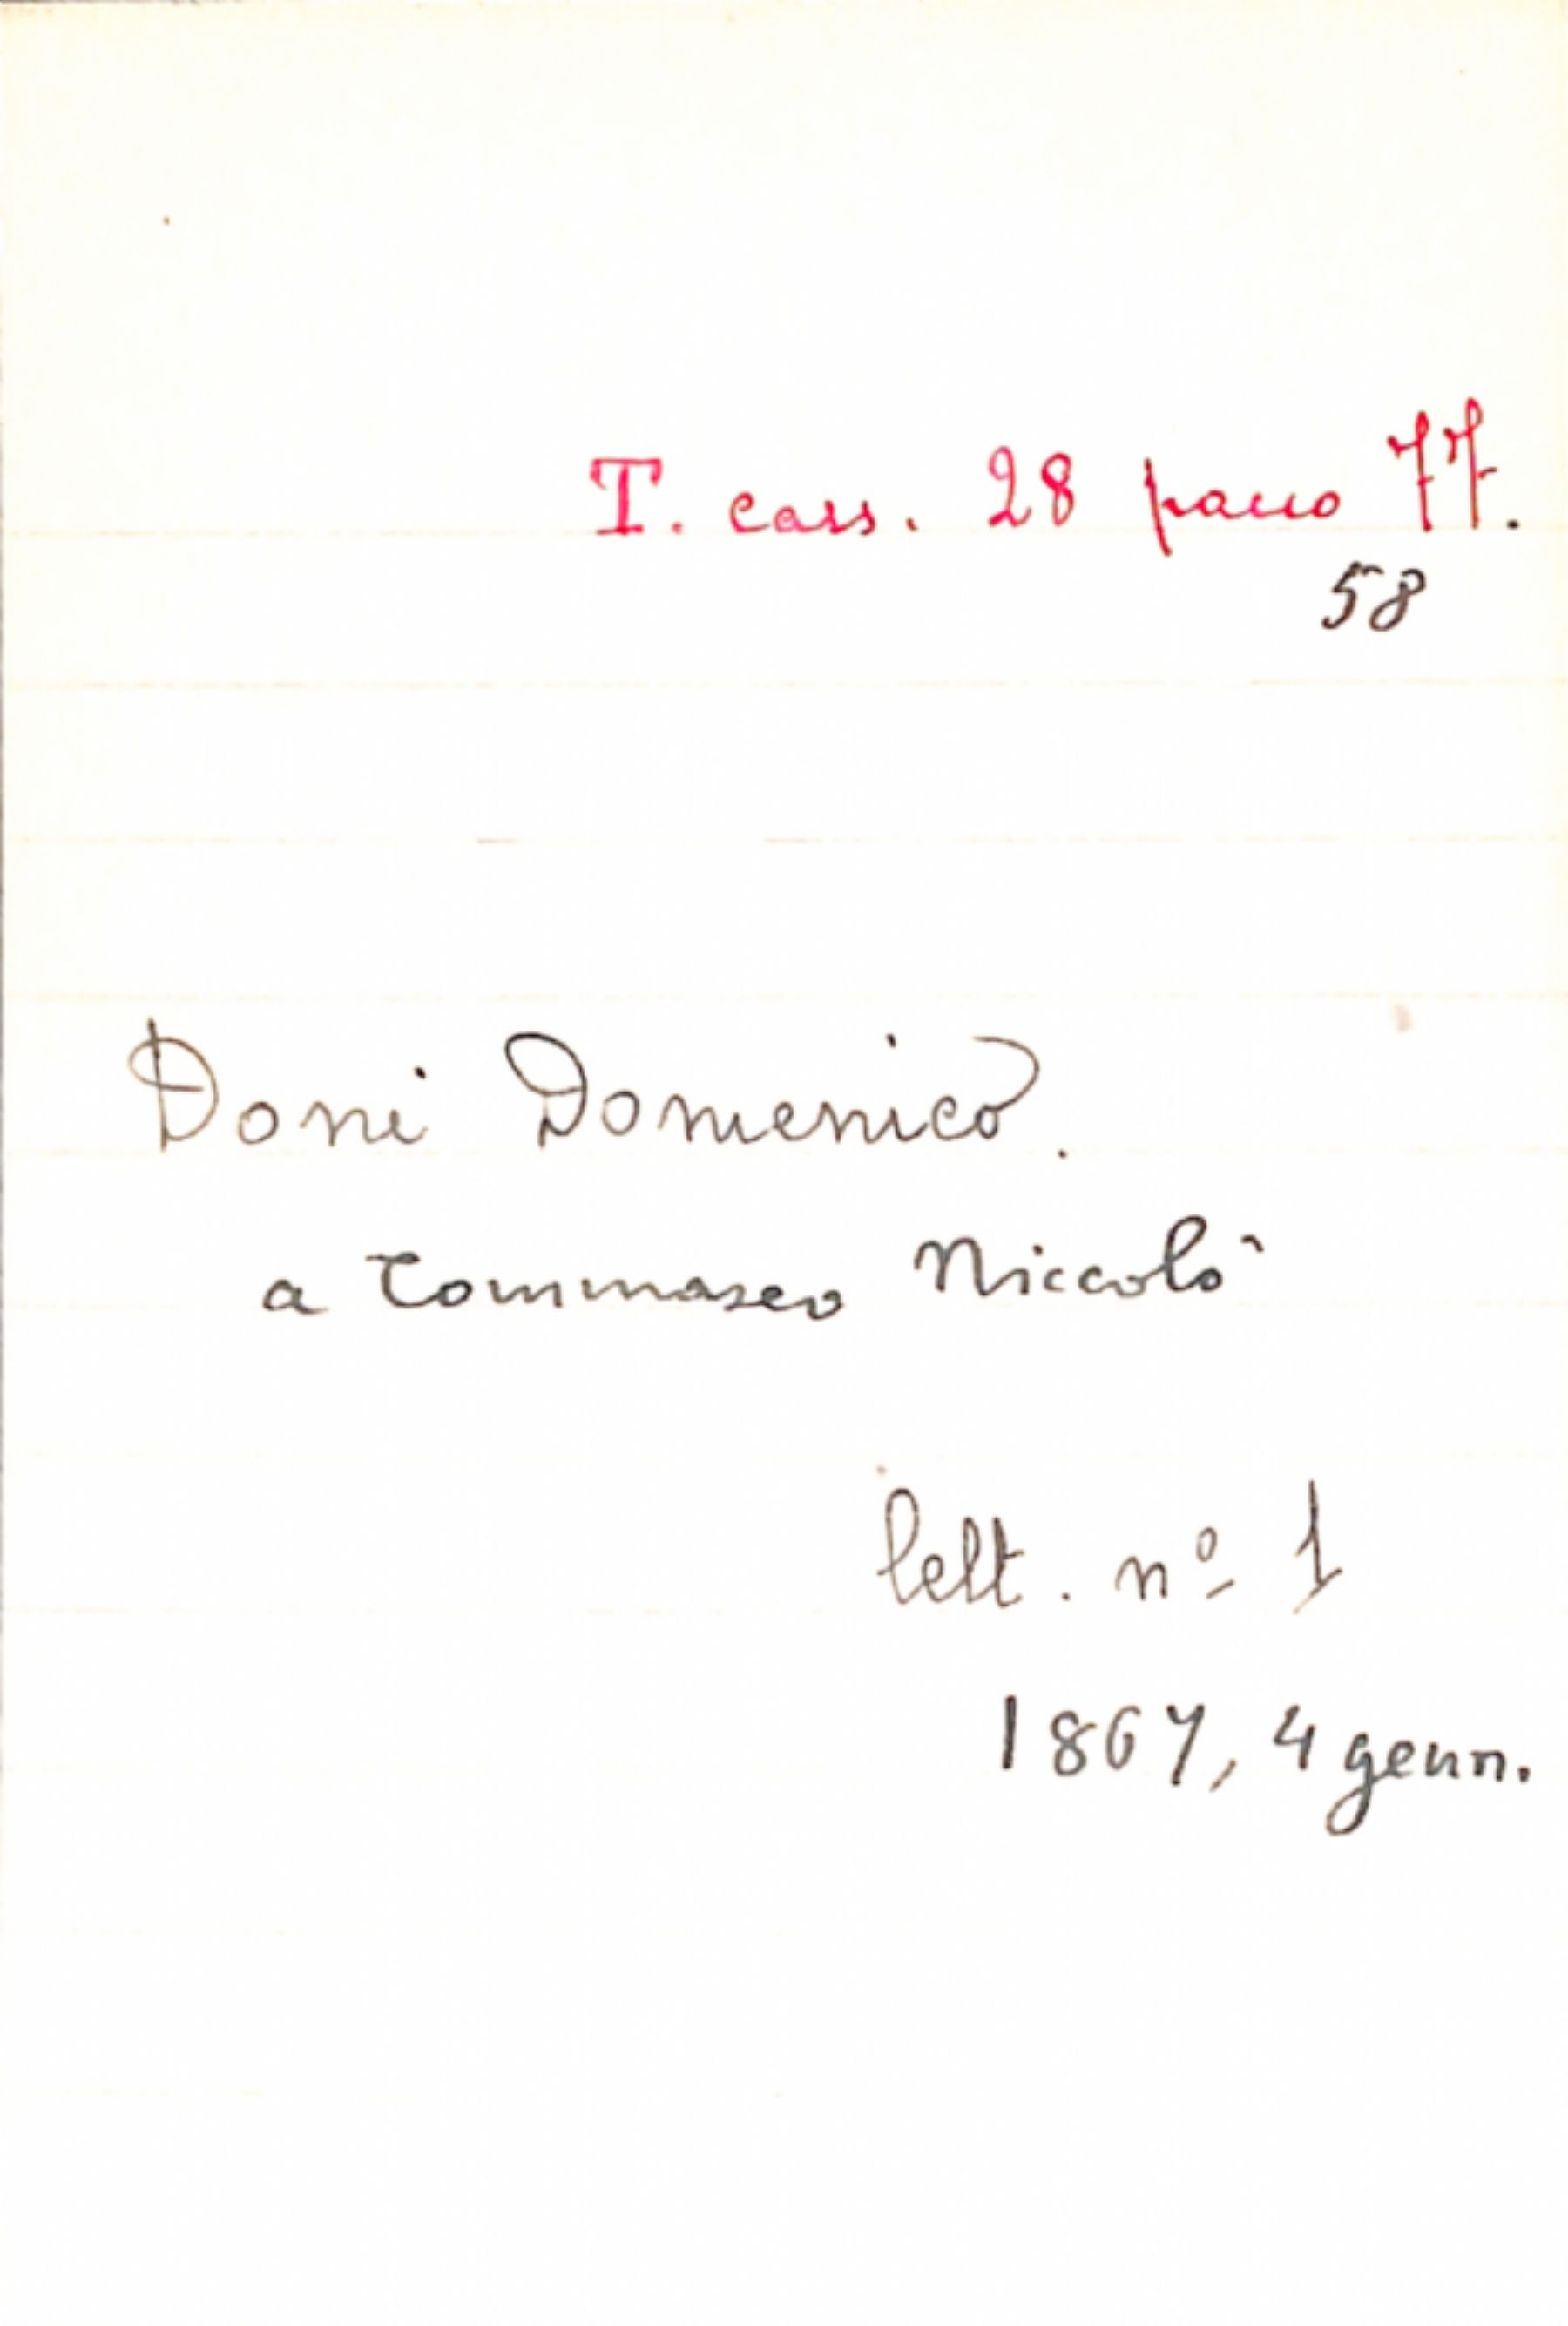 T. cass. 28 pacco 77.
58
Doni Domenico.
a Tommaseo Niccolò
lett. nº 1
1867, 4 genn.